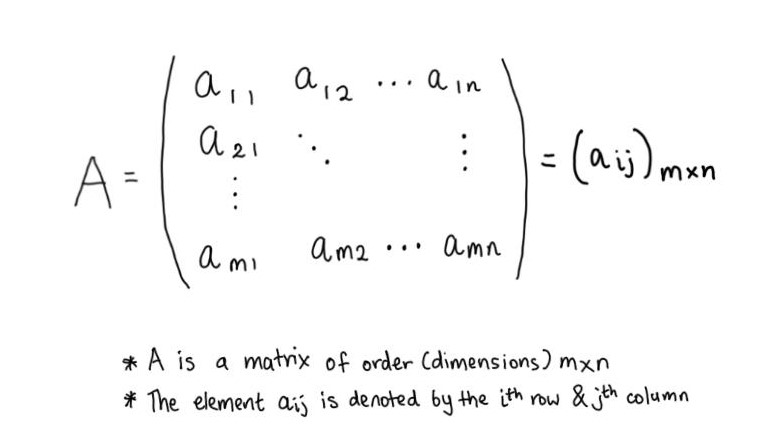 a₁₁ a₁₂ ⋯ a₁ₙ
a₂₁ ⋱ ⋮
A = ⋮ = (aᵢⱼ)ₘₓₙ
aₘ₁ aₘ₂ ⋯ aₘₙ
* A is a matrix of order (dimensions) m×n
* The element aij is denoted by the ith row & jth column